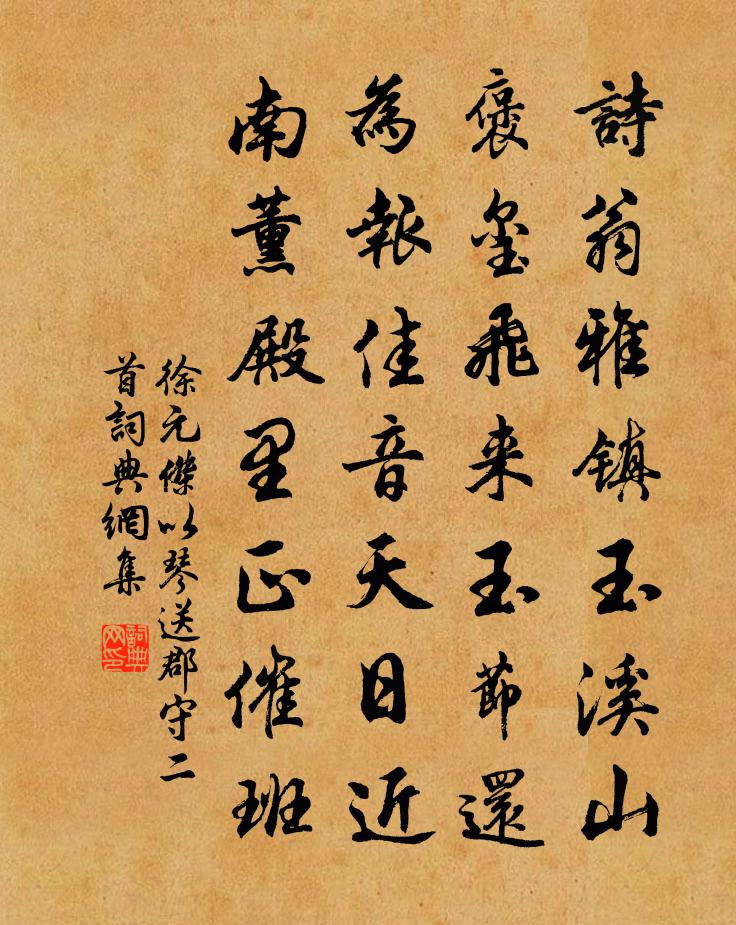 詩翁雅镇玉溪山
褒璽飛来玉節還
為報佳音天日近
南薰殿里正催班
徐元傑以琴送郡守二
首詞典網集
詞典
网印